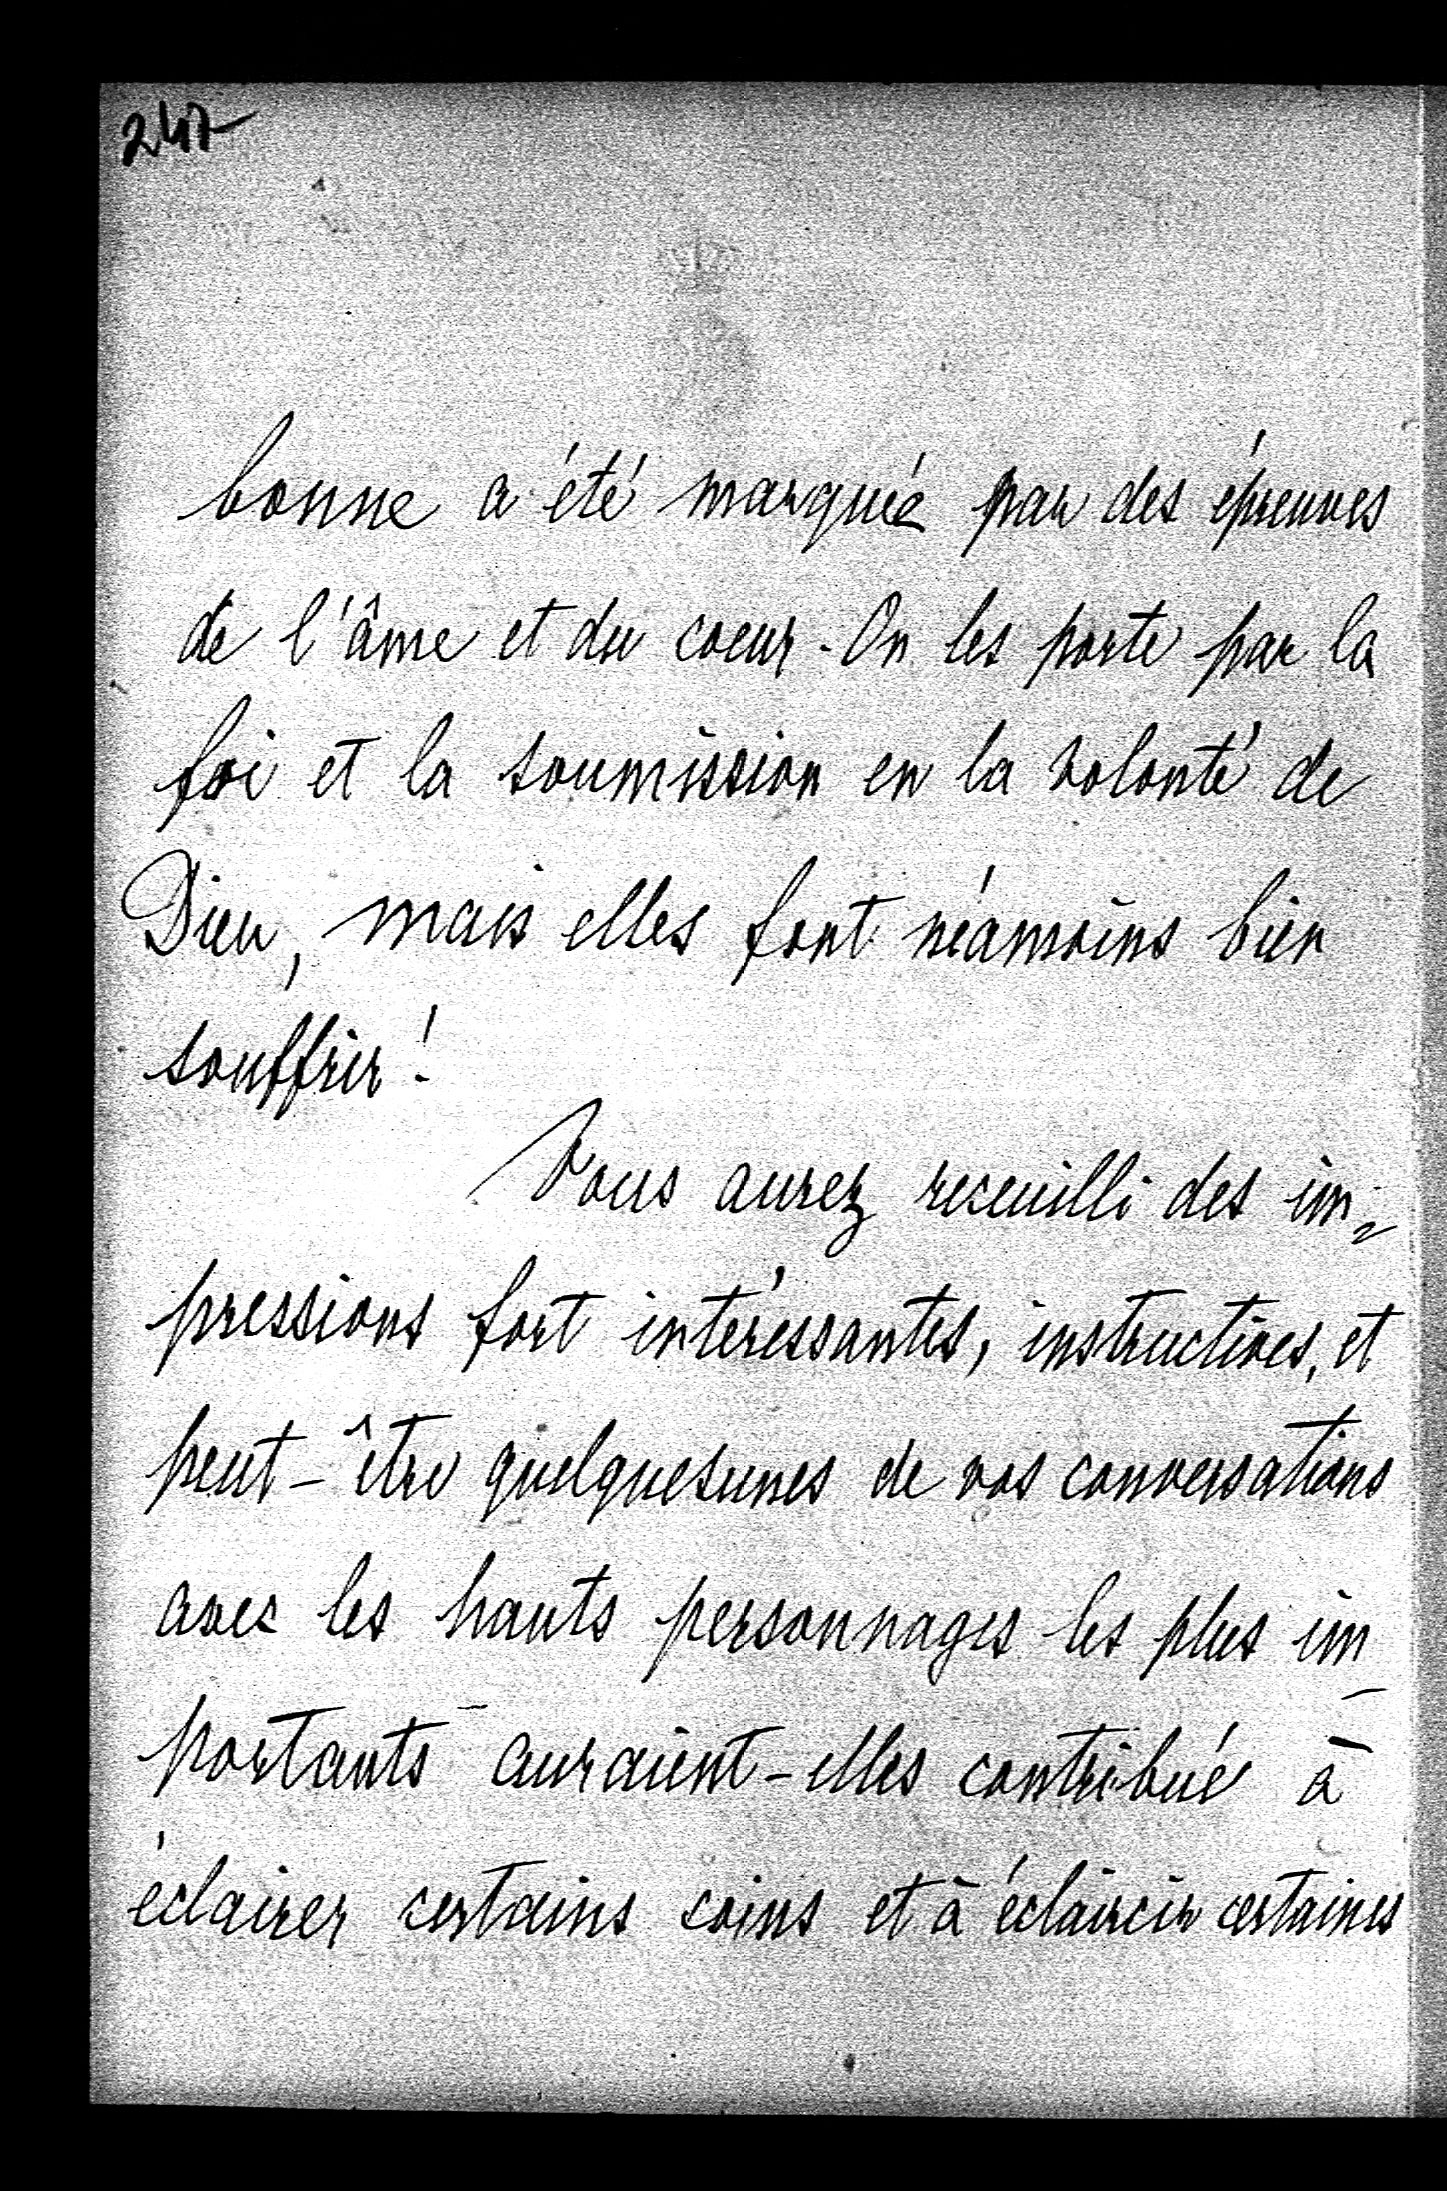 247
bonne a été marquée par des épreuves
de l'âme et du coeur. On les porte par la
foi et la soumission en la volonté de
Dieu, mais elles font néamoins bien
souffrir!
Vous aurez receuilli des im=
pressions fort intéressantes, instructives, et
peut-être quelquesunes de vos conversations
avec les hauts personnages les plus im
portants auraient-elles contribué à
éclairer certains coins et à éclaircir certaines